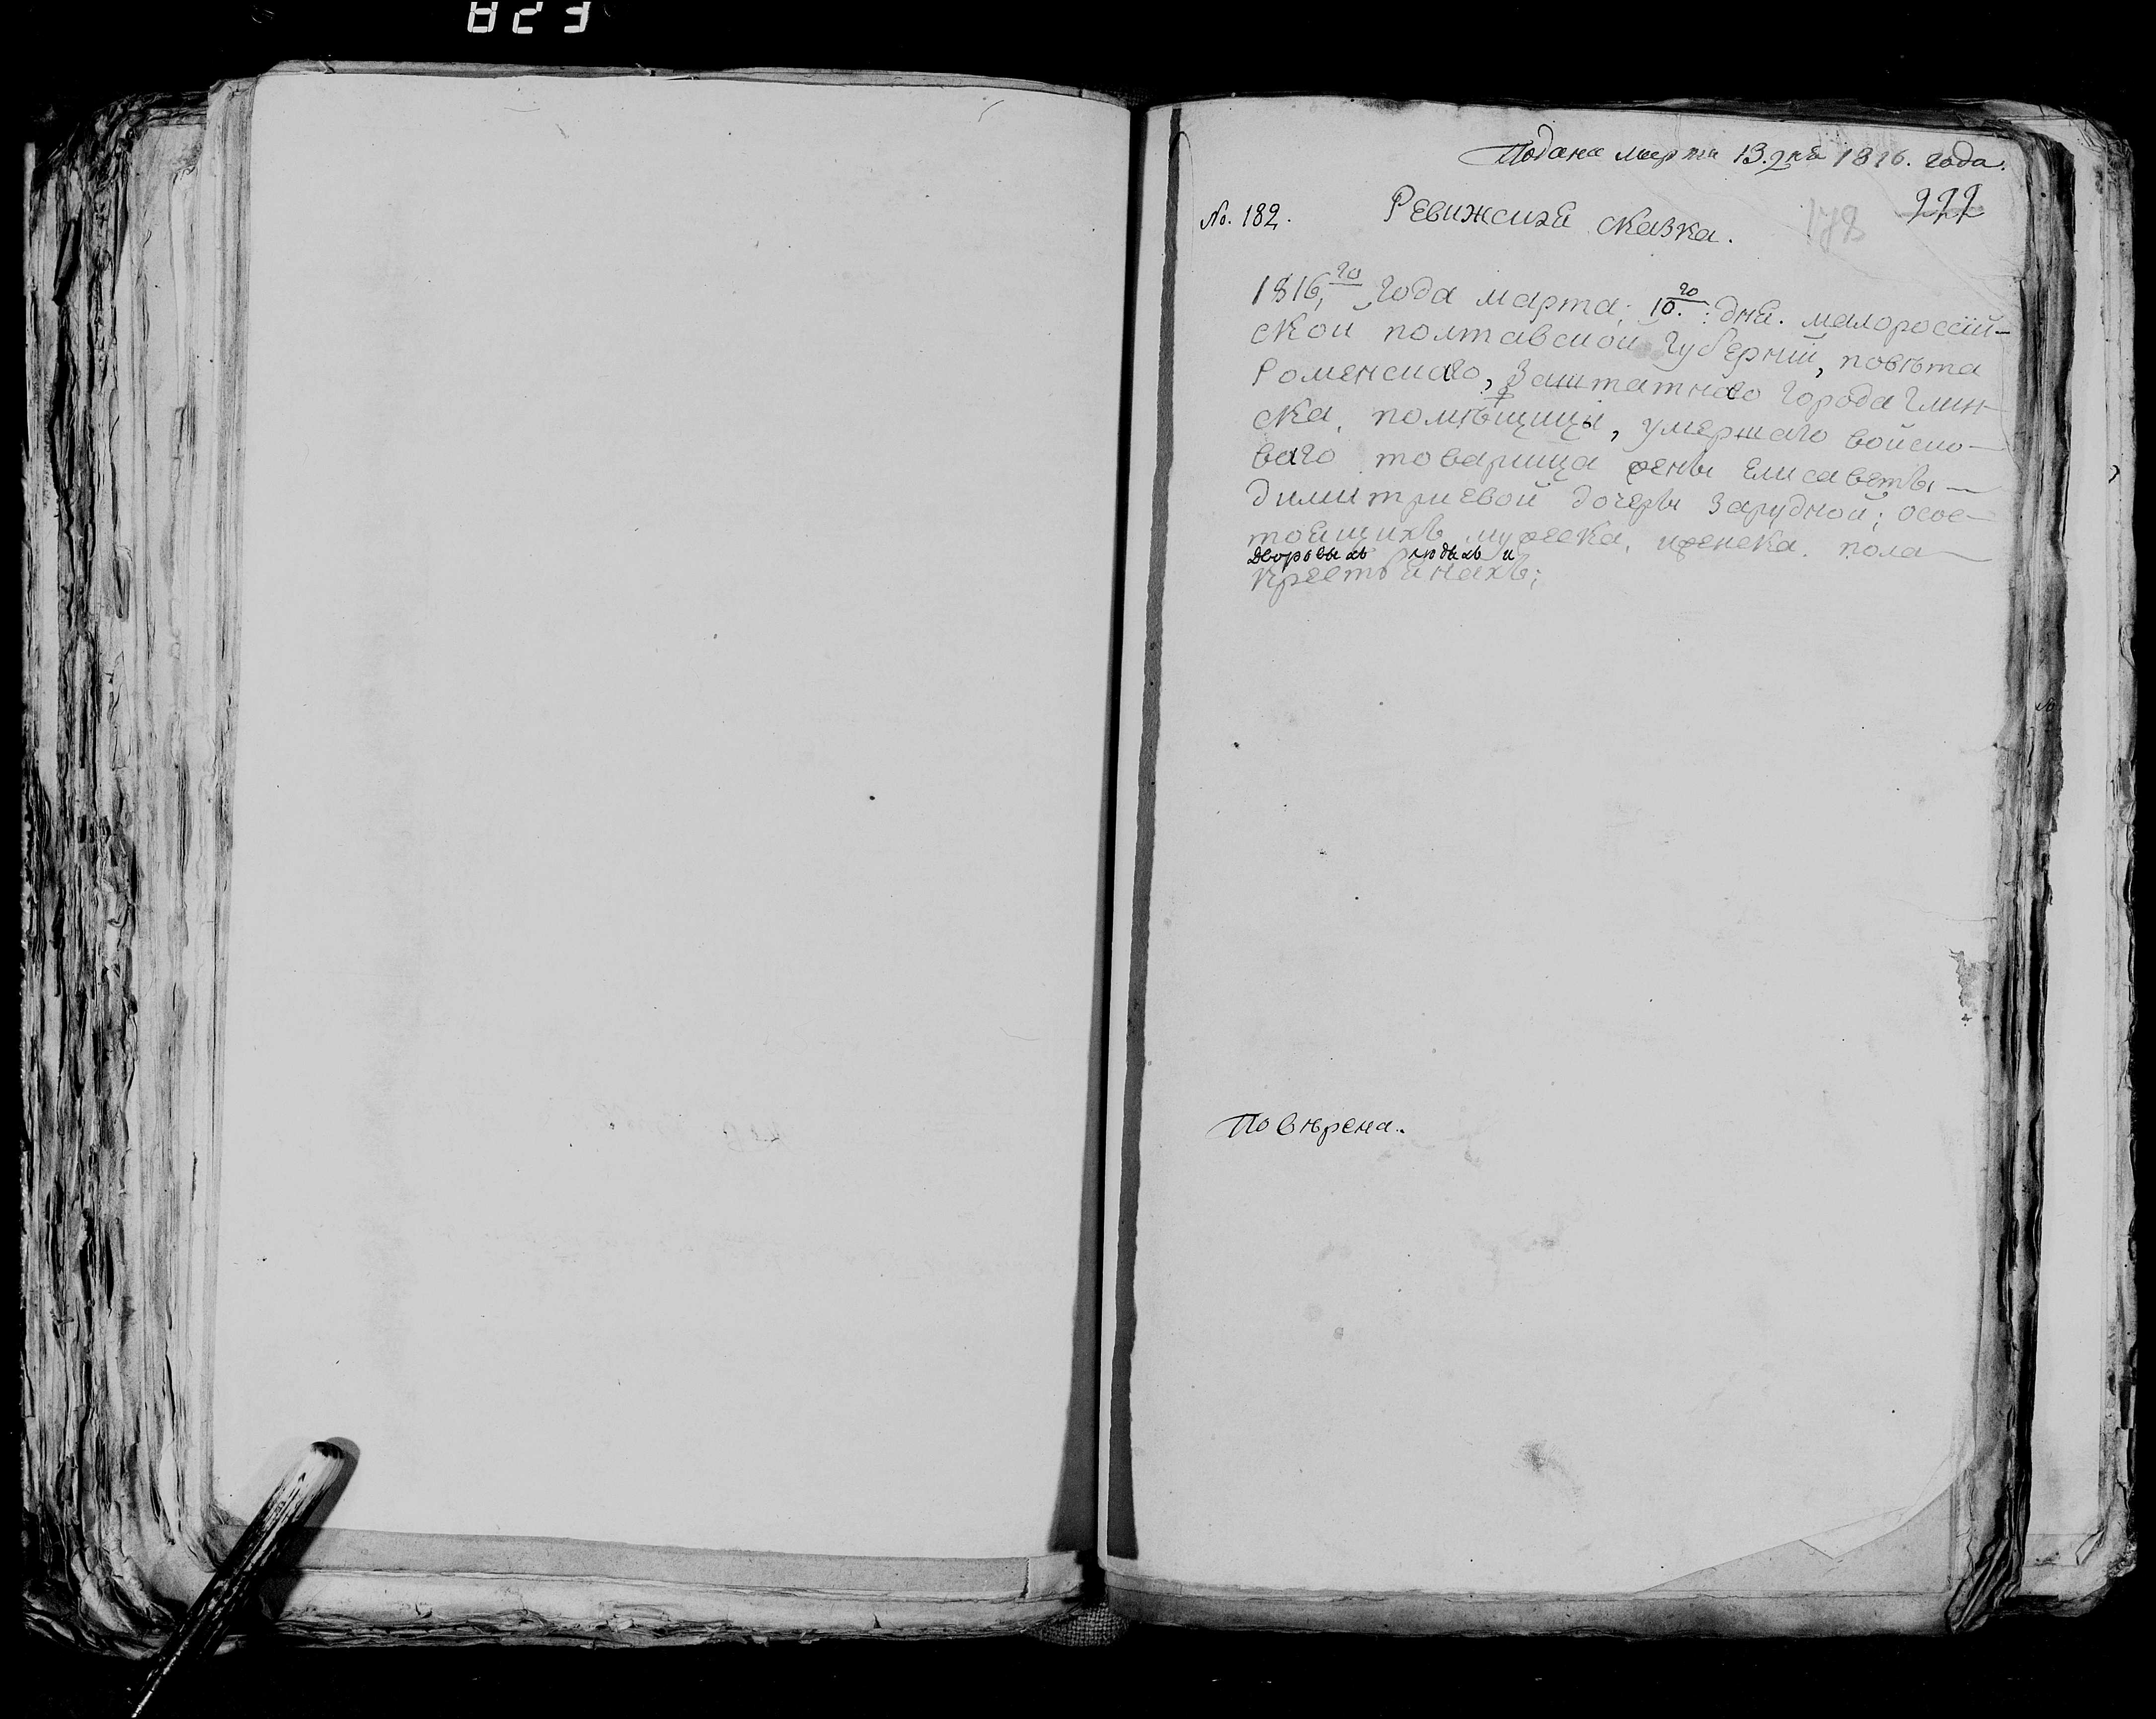 823
Подана марта 13. дня 1816. года.
No. 182.
Ревижския сказка.
178
222
1816,го года марта; 10.го: дня. малороссїй-
ской полтавской губернїи, повѣта
Роменскаго, Заштатнаго города Глин-
ска, помѣщицы, умершаго войско-
ваго товарища жены Елисаветы
димитриевой дочеры Зарудной; осос-
тоящихъ мужеска, иженска. пола
дворовыхъ людяхъ и
крестьянахъ;
Повѣрена.